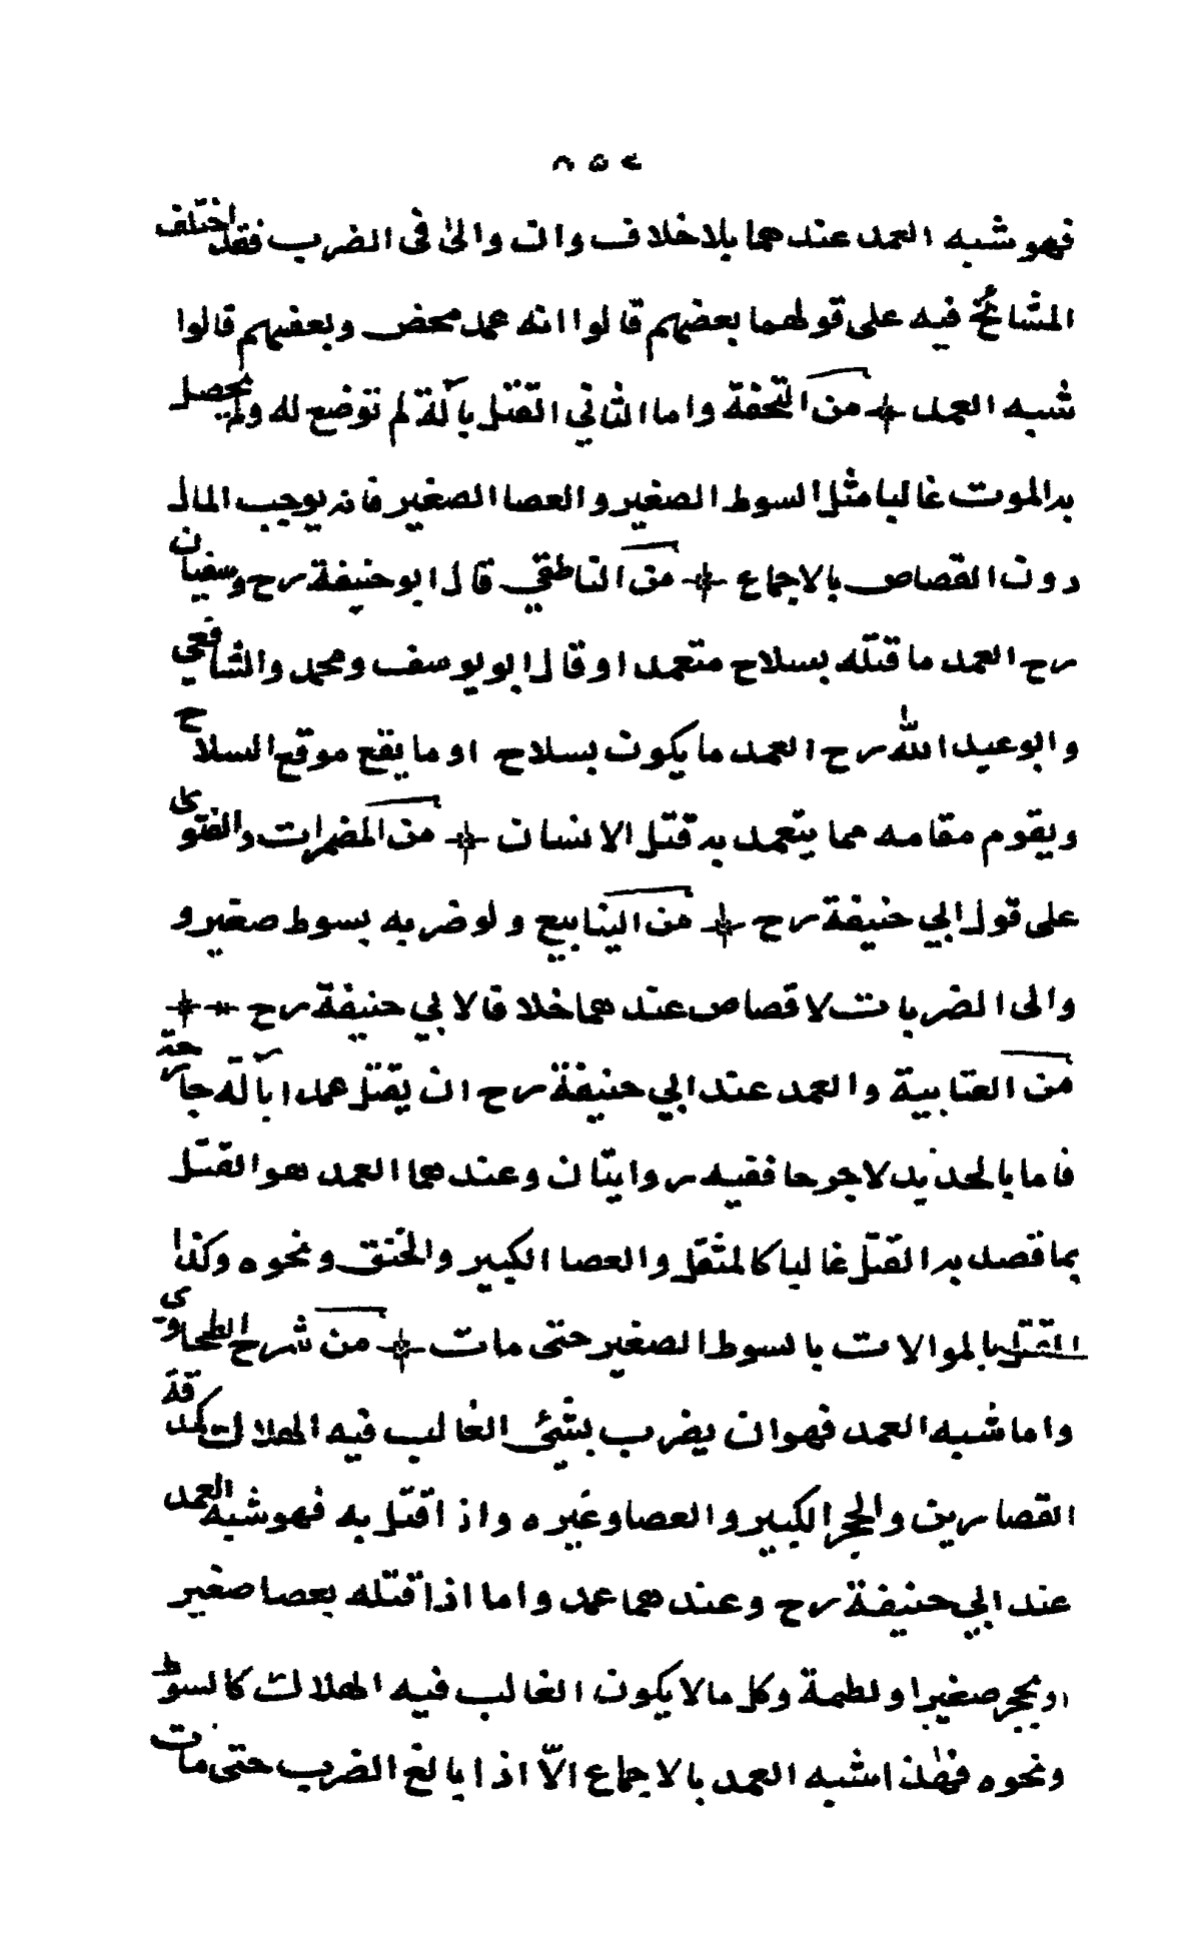 ٨٥٢
فهو شبه العمد عندهما بلا خلاف وان والى في الضرب فقد اختلف
المشائخ فيه على قولهما بعضهم قالوا انه عمد محض وبعضهم قالوا
شبه العمد من التحفة واما الثاني القتل بآلة لم توضع له ولم يحصل
به الموت غالبا مثل السوط الصغير والعصا الصغير فانه يوجب المال
دون القصاص بالاجماع من الناطقي قال ابو حنيفة رح وسفيان
رح العمد ما قتله بسلاح متعمدا وقال ابو يوسف ومحمد والشافعي
وابو عبد الله رح العمد ما يكون بسلاح او ما يقع موقع السلاح
ويقوم مقامه مما يتعمد به قتل الانسان من المضمرات والفتوى
على قول ابي حنيفة رح من الينابيع ولو ضربه بسوط صغير و
والى الضربات لا قصاص عندهما خلافا لابي حنيفة رح
من العتابية والعمد عند ابي حنيفة رح ان يقتل عمدا بآلة جارحة
فاما بالحديد لا جرحا ففيه روايتان وعندهما العمد هو القتل
بما قصد به القتل غالبا كالمثقل والعصا الكبير والخنق ونحوه وكذا
القتل بالموالات بالسوط الصغير حتى مات من شرح الطحاوي
واما شبه العمد فهو ان يضرب بشئ الغالب فيه الهلاك كمدقة
القصارين والحجر الكبير والعصا وغيره واذا قتل به فهو شبه العمد
عند ابي حنيفة رح وعندهما عمد واما اذا قتله بعصا صغير
او بحجر صغير او لطمة وكل ما لا يكون الغالب فيه الهلاك كالسوط
ونحوه فهذا شبه العمد بالاجماع الّا اذا بالغ الضرب حتى مات